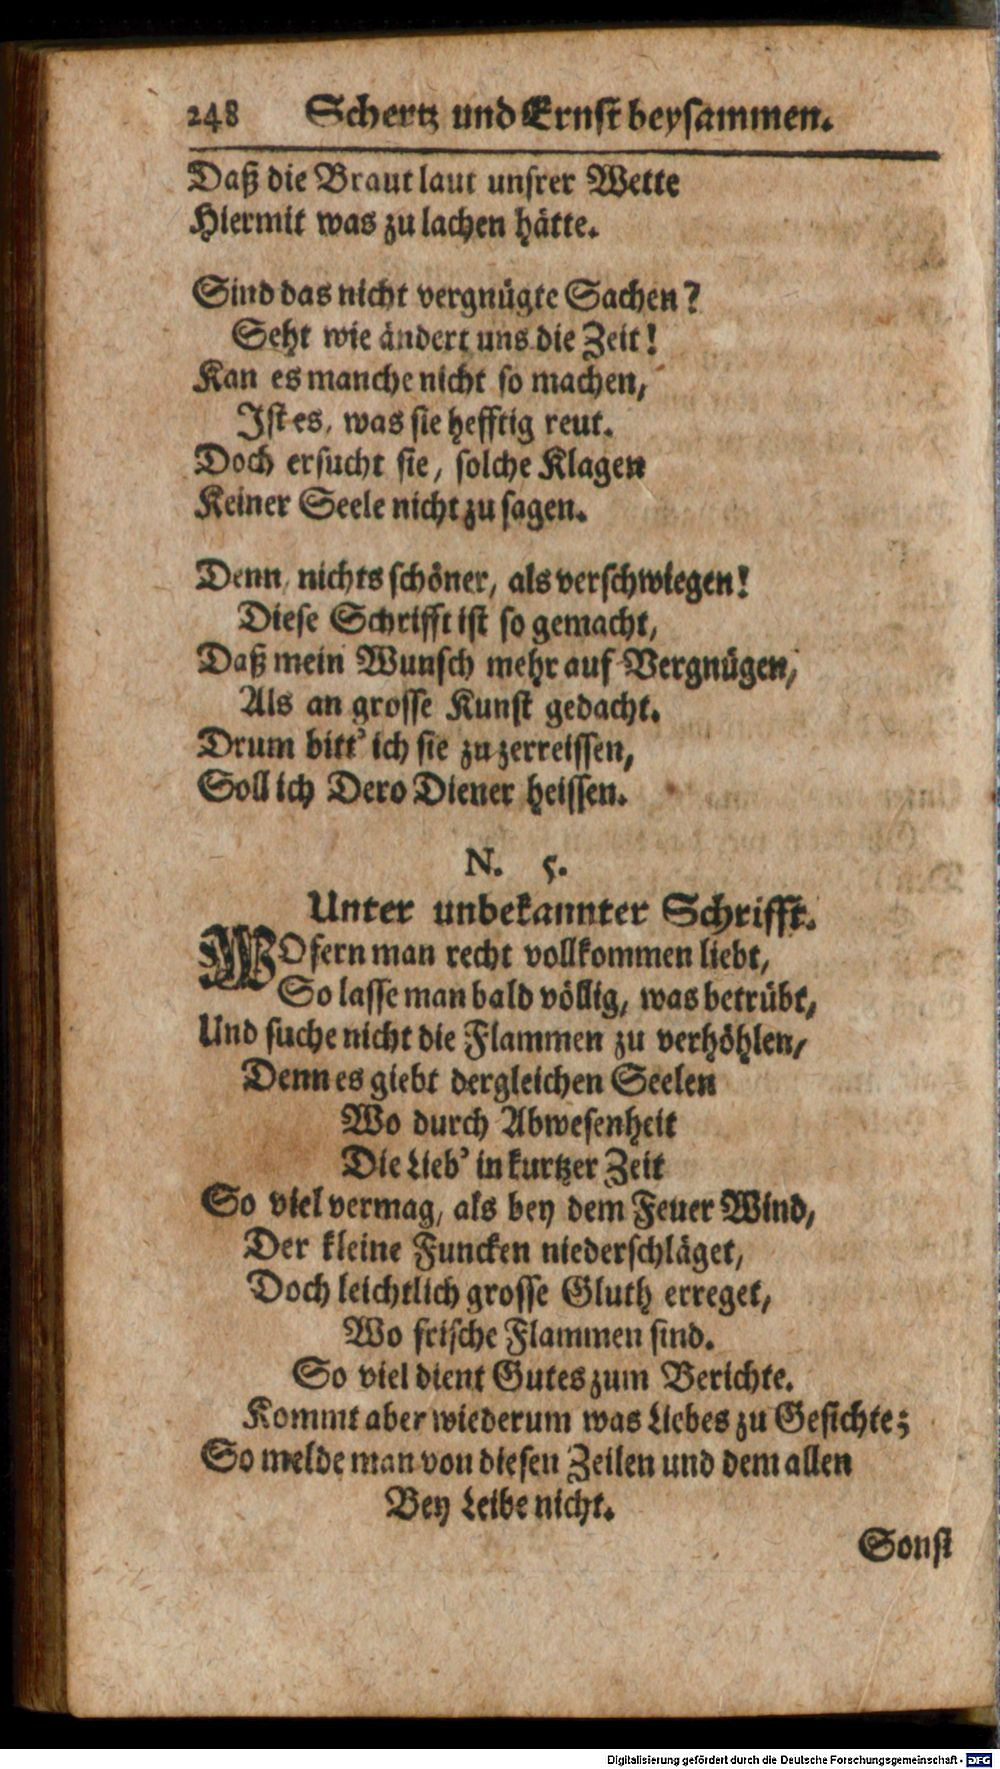 248 Schertz und Ernst beysammen.
Daß die Braut laut unsrer Wette
Hiermit was zu lachen hätte.
Sind das nicht vergnügte Sachen?
Seht wie ändert uns die Zeit!
Kan es manche nicht so machen,
Ist es, was sie hefftig reut.
Doch ersucht sie, solche Klagen
Keiner Seele nicht zu sagen.
Denn nichts schöner, als verschwiegen!
Diese Schrifft ist so gemacht,
Daß mein Wunsch mehr auf Vergnügen,
Als an grosse Kunst gedacht.
Drum bitt' ich sie zu zerreissen,
Soll ich Dero Diener heissen.
N. 5.
Unter unbekannter Schrifft.
WOfern man recht vollkommen liebt,
So lasse man bald völlig, was betrübt,
Und suche nicht die Flammen zu verhöhlen,
Denn es giebt dergleichen Seelen
Wo durch Abwesenheit
Die Lieb' in kurtzer Zeit
So viel vermag, als bey dem Feuer Wind,
Der kleine Funcken niederschläget,
Doch leichtlich grosse Gluth erreget,
Wo frische Flammen sind.
So viel dient Gutes zum Berichte.
Kommt aber wiederum was Liebes zu Gesichte;
So melde man von diesen Zeilen und dem allen
Bey Leibe nicht.
Sonst
Digitalisierung gefördert durch die Deutsche Forschungsgemeinschaft - DFG